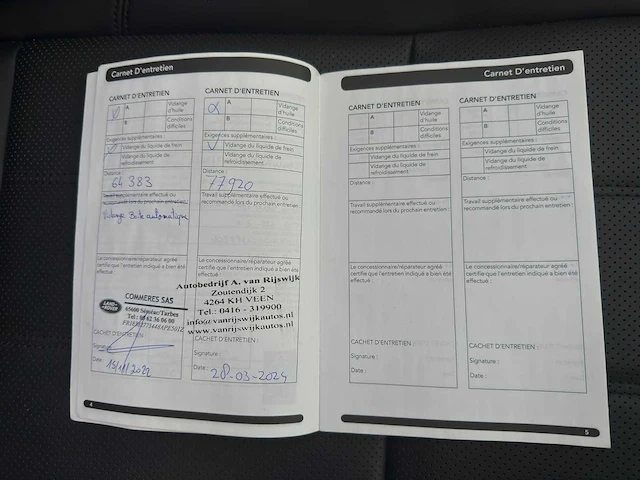 Carnet D'entretien
CARNET D'ENTRETIEN
A
Vidange d'huile
B
Conditions difficiles
Exigences supplémentaires :
Vidange du liquide de frein
Vidange du liquide de refroidissement
Distance :
64 383
Travail supplémentaire effectué ou recommandé lors du prochain entretien :
Vidange Boîte automatique
Le concessionnaire/réparateur agréé certifie que l'entretien indiqué a bien été effectué :
LAND-ROVER
COMMERES SAS
65600 Séméac/Tarbes
Tel : 05 62 36 06 00
CACHET D'ENTRETIEN :
Signature :
Date : 15/11/2022
4
CARNET D'ENTRETIEN
A
Vidange d'huile
B
Conditions difficiles
Exigences supplémentaires :
Vidange du liquide de frein
Vidange du liquide de refroidissement
Distance :
77920
Travail supplémentaire effectué ou recommandé lors du prochain entretien :
Le concessionnaire/réparateur agréé certifie que l'entretien indiqué a bien été effectué :
Autobedrijf A. van Rijswijk
Zoutendijk 2
4264 KH VEEN
Tel.: 0416 - 319900
info@vanrijswijkautos.nl
www.vanrijswijkautos.nl
CACHET D'ENTRETIEN :
Signature :
Date : 28-03-2024
Carnet D'entretien
CARNET D'ENTRETIEN
A
Vidange d'huile
B
Conditions difficiles
Exigences supplémentaires :
Vidange du liquide de frein
Vidange du liquide de refroidissement
Distance :
Travail supplémentaire effectué ou recommandé lors du prochain entretien :
Le concessionnaire/réparateur agréé certifie que l'entretien indiqué a bien été effectué :
CACHET D'ENTRETIEN :
Signature :
Date :
CARNET D'ENTRETIEN
A
Vidange d'huile
B
Conditions difficiles
Exigences supplémentaires :
Vidange du liquide de frein
Vidange du liquide de refroidissement
Distance :
Travail supplémentaire effectué ou recommandé lors du prochain entretien :
Le concessionnaire/réparateur agréé certifie que l'entretien indiqué a bien été effectué :
CACHET D'ENTRETIEN :
Signature :
Date :
5